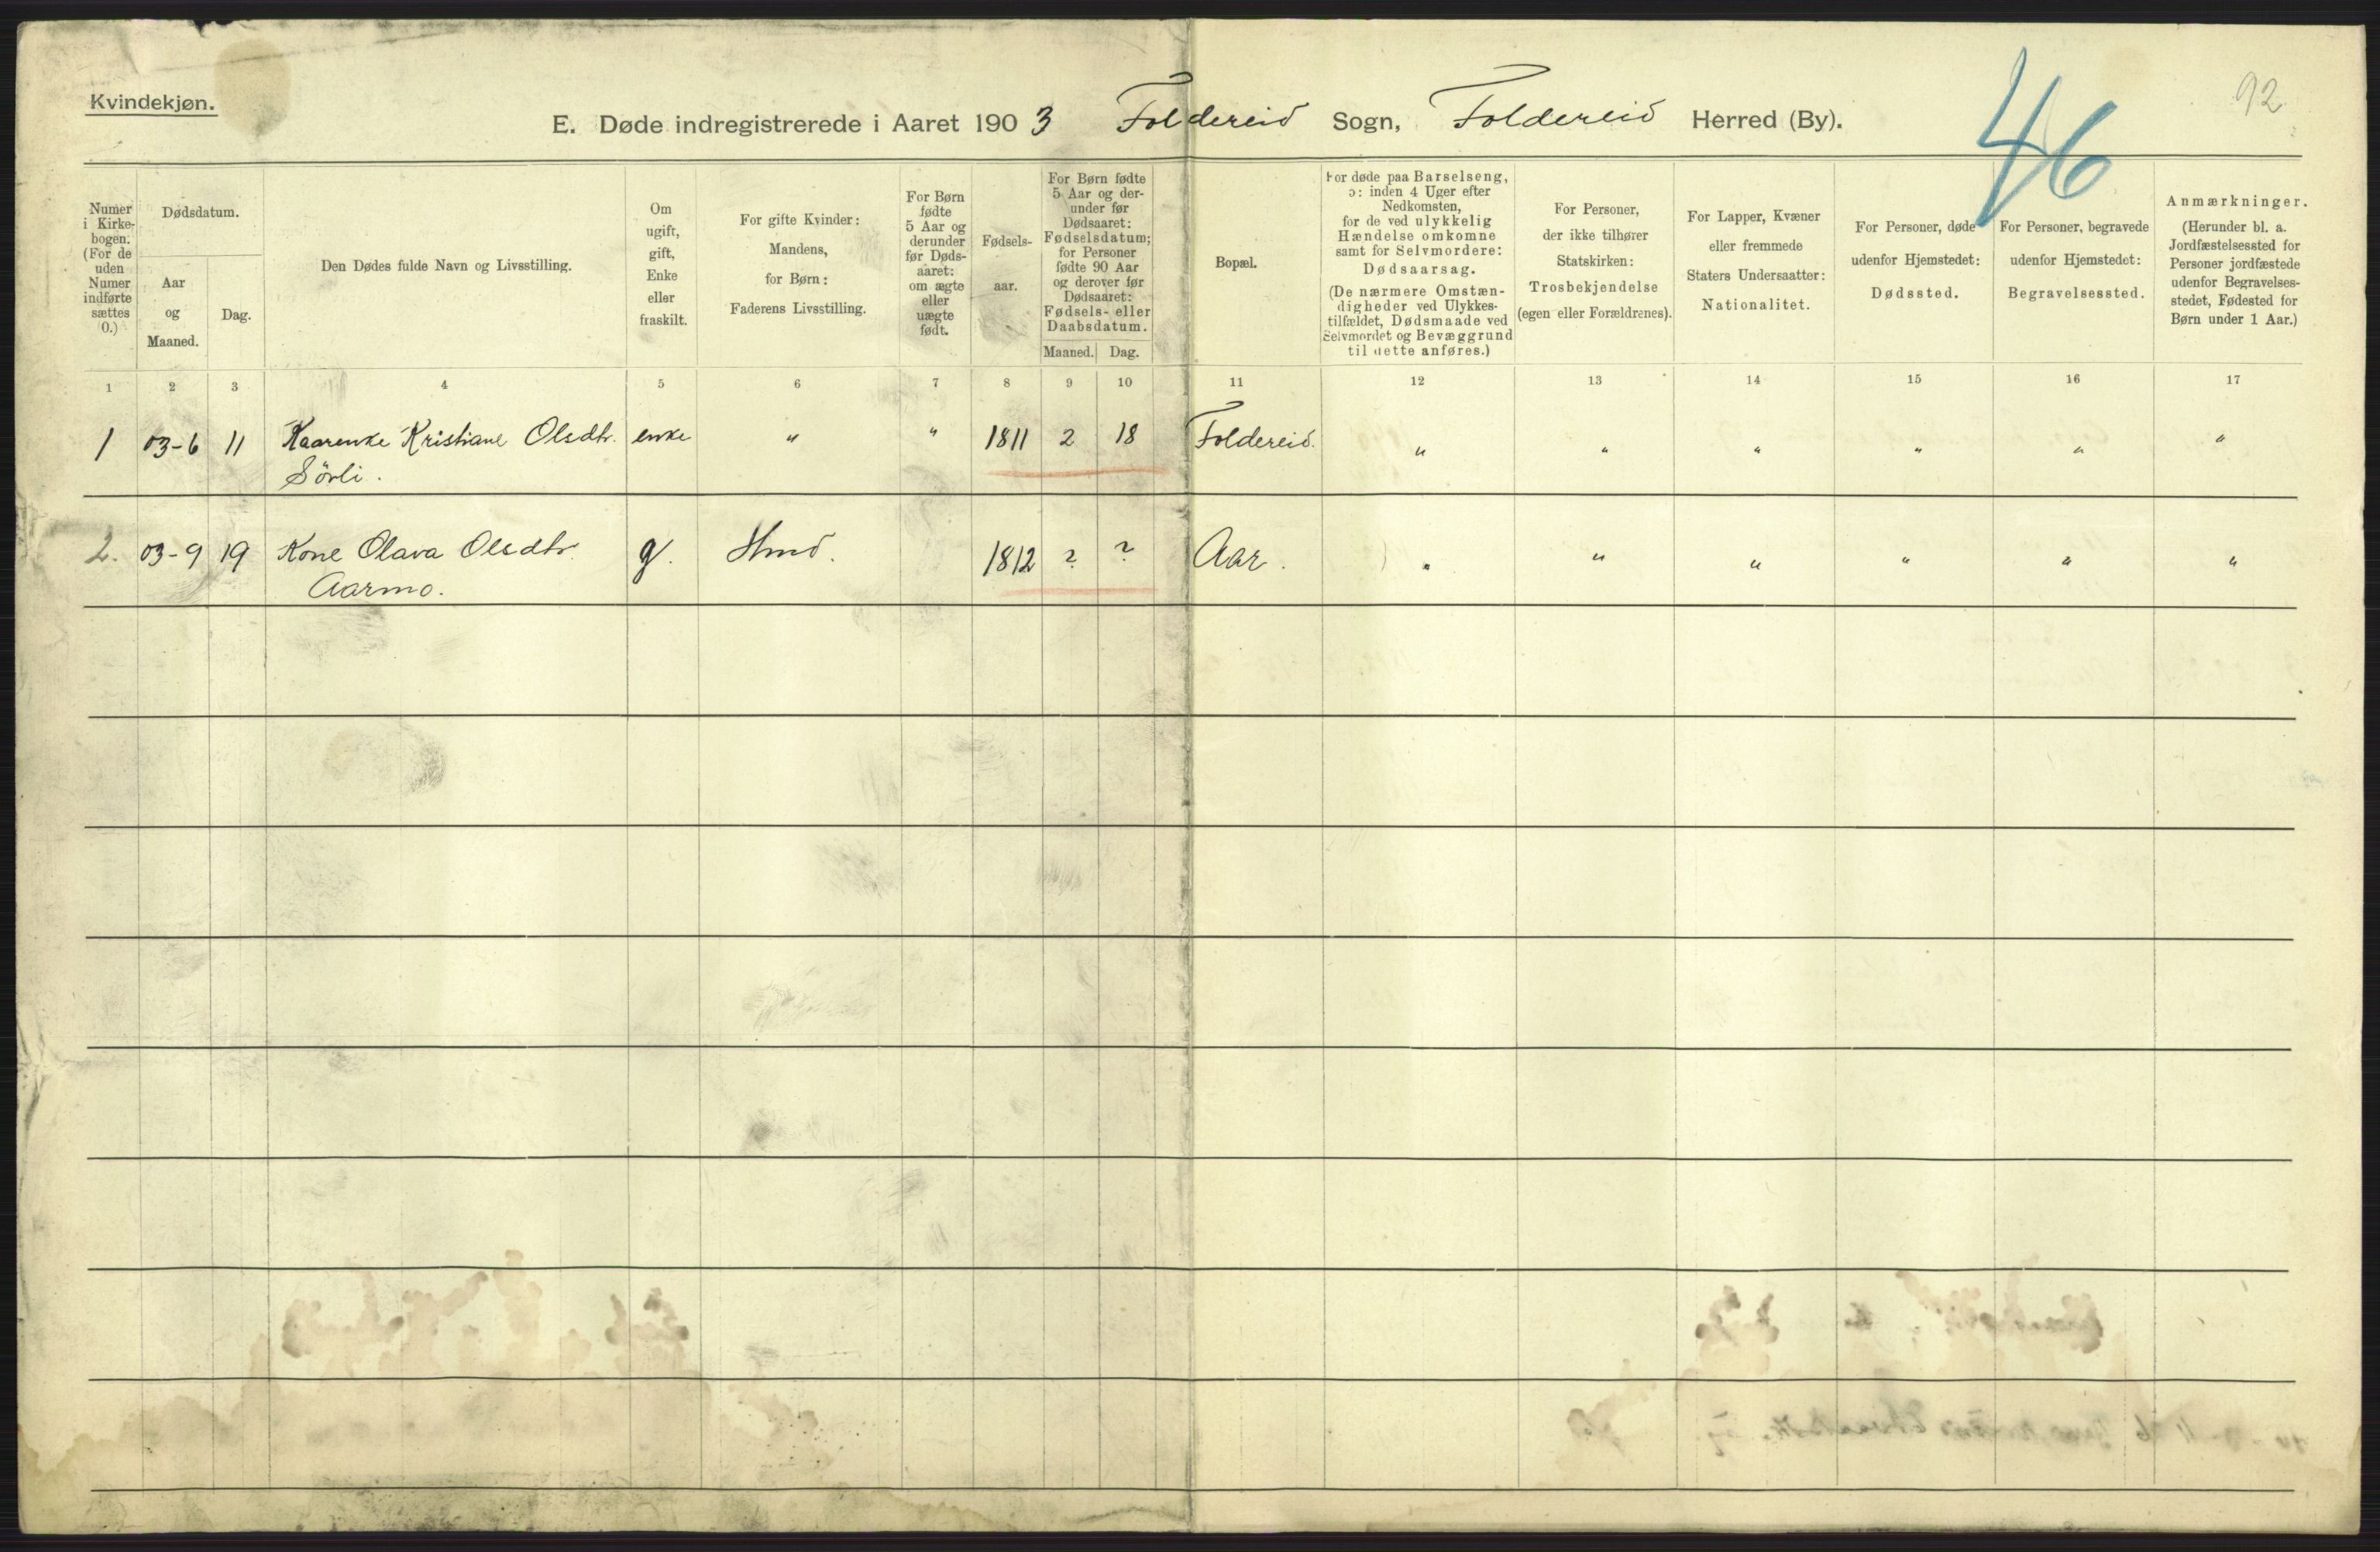 Kvindekjøn.
E. Døde indregistrerede i Aaret 1903 Foldereid Sogn, Foldereid Herred (By).
46
92
Numer
i Kirke-
bogen.
(For de
uden
Numer
indførte
sættes
0.)
Dødsdatum.
Aar
og
Maaned.
Dag.
Den Dødes fulde Navn og Livsstilling.
Om
ugift,
gift,
Enke
eller
fraskilt.
For gifte Kvinder:
Mandens,
for Børn:
Faderens Livsstilling.
For Børn
fødte
5 Aar og
derunder
før Døds-
aaret:
om ægte
eller
uægte
født.
Fødsels-
aar.
For Børn fødte
5 Aar og der-
under før
Dødsaaret:
Fødselsdatum;
for Personer
fødte 90 Aar
og derover før
Dødsaaret:
Fødsels- eller
Daabsdatum.
Maaned. Dag.
Bopæl.
For døde paa Barselseng,
ɔ: inden 4 Uger efter
Nedkomsten,
for de ved ulykkelig
Hændelse omkomne
samt for Selvmordere:
Dødsaarsag.
(De nærmere Omstæn-
digheder ved Ulykkes-
tilfældet, Dødsmaade ved
Selvmordet og Bevæggrund
til dette anføres.)
For Personer,
der ikke tilhører
Statskirken:
Trosbekjendelse
(egen eller Forældrenes).
For Lapper, Kvæner
eller fremmede
Staters Undersaatter:
Nationalitet.
For Personer, døde
udenfor Hjemstedet:
Dødssted.
For Personer, begravede
udenfor Hjemstedet:
Begravelsessted.
Anmærkninger.
(Herunder bl. a.
Jordfæstelsessted for
Personer jordfæstede
udenfor Begravelses-
stedet, Fødested for
Børn under 1 Aar.)
1 2 3 4 5 6 7 8 9 10 11 12 13 14 15 16 17
1 03-6 11 Kaarenke Kristiane Olsdtr. enke " " 1811 2 18 Foldereid. " " " " " "
Sörli.
2. 03-9 19 Kone Olava Olsdtr. g. Hmd. 1812 ? ? Aar. " " " " " "
Aarmo.